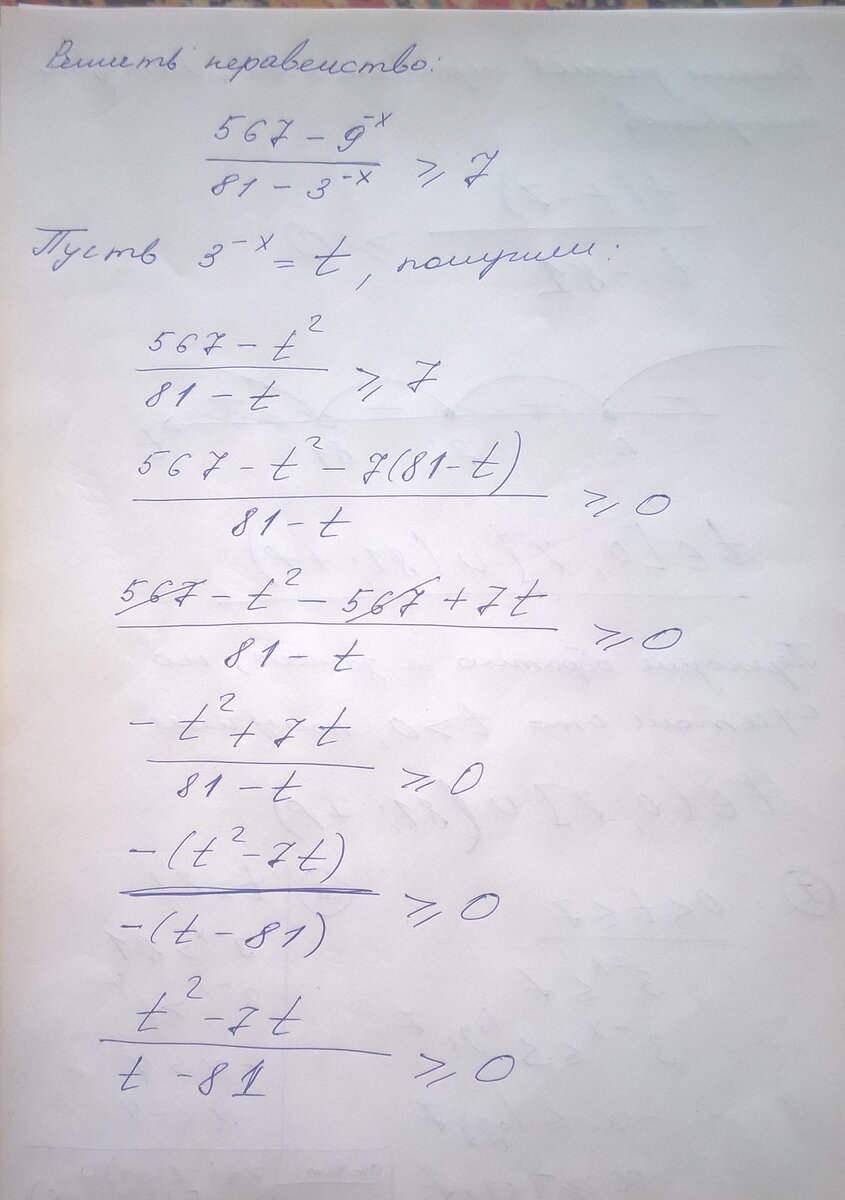 Решить неравенство:
(567 - 9^{-x}) / (81 - 3^{-x}) ⩾ 7
Пусть 3^{-x} = t, получили:
(567 - t²) / (81 - t) ⩾ 7
(567 - t² - 7(81 - t)) / (81 - t) ⩾ 0
(567 - t² - 567 + 7t) / (81 - t) ⩾ 0
(- t² + 7t) / (81 - t) ⩾ 0
(-(t² - 7t)) / (-(t - 81)) ⩾ 0
(t² - 7t) / (t - 81) ⩾ 0